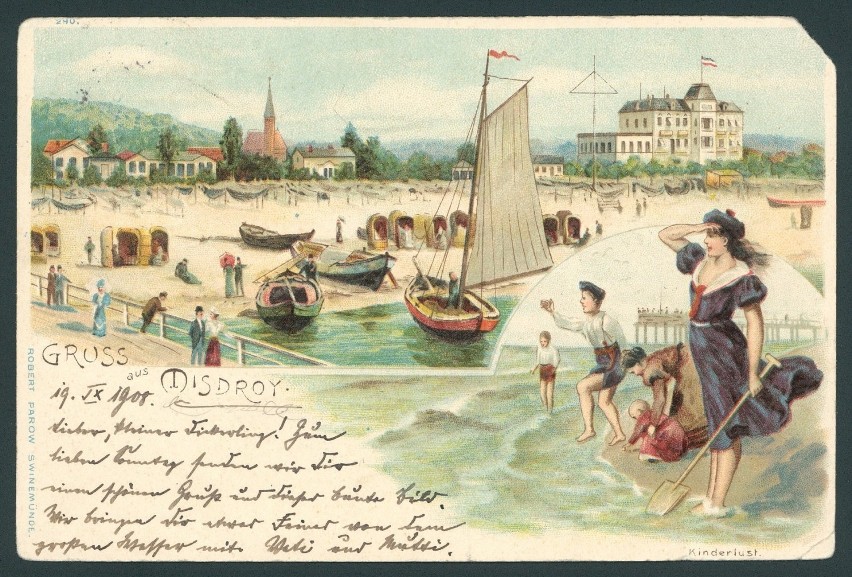 290.
GRUSS
aus MISDROY.
19. IX 1908.
Lieber, kleiner Dickerling! Zum
lieben Sonntag senden wir Dir
einen schönen Gruß und dieses bunte Bild.
Wir bringen Dir etwas Feines von dem
großen Wasser mit. Vati und Mutti.
ROBERT PAROW SWINEMÜNDE.
Kinderlust.